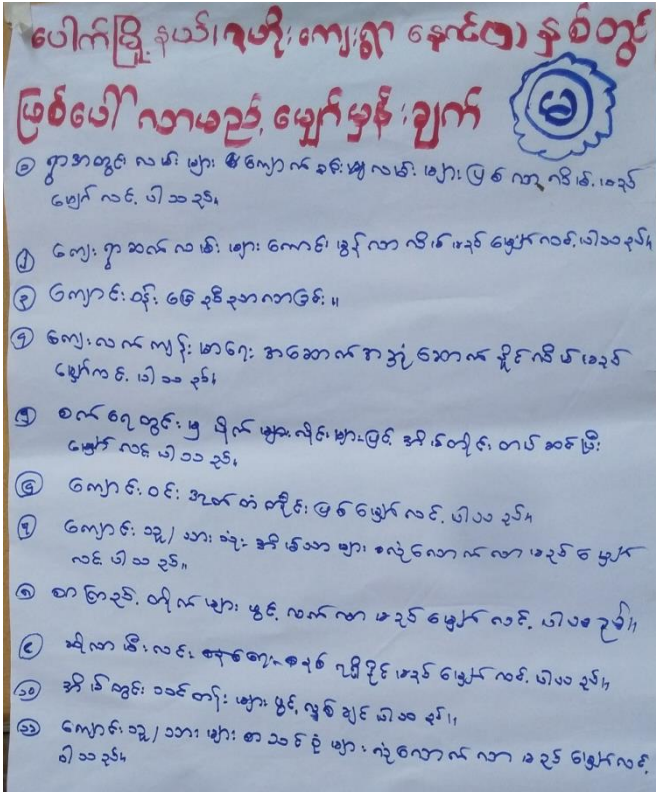 ပေါက်မြို့နယ်၊ ရဟိုးကျေးရွာ နောင်(၅)နှစ်တွင်
ဖြစ်ပေါ်လာမည့် မျှော်မှန်းချက်
မ
၁ ရွာအတွင်းလမ်းများ ကျောက်ခင်းလမ်းများ ဖြစ်လာလိမ့်မည်
မျှော်လင့်ပါသည်။
၂ ကျေးရွာဆက်လမ်းများ ကောင်းမွန်လာလိမ့်မည် မျှော်လင့်ပါသည်။
၃ ကျောင်းဝန်း မြေညှိညာလာခြင်း။
၄ ကျေးလက်ကျန်းမာရေး အဆောက်အအုံဆောက်နိုင်လိမ့်မည်
မျှော်လင့်ပါသည်။
၅ စက်ရေတွင်းမှ ပိုက်များလိုင်းများဖြင့် အိမ်တိုင်းတပ်ဆင်ပြီး
မျှော်လင့်ပါသည်။
၆ ကျောင်းဝင်းအုတ်တံတိုင်း ဖြစ်မျှော်လင့်ပါသည်။
၇ ကျောင်းသူ/သားသုံး အိမ်သာများ လုံလောက်လာမည် မျှော်
လင့်ပါသည်။
၈ စာကြည့်တိုက်များ ဖွင့်လှစ်လာမည် မျှော်လင့်ပါသည်။
၉ ဆိုလာမီးလင်းရေး ရရှိနိုင်မည် မျှော်လင့်ပါသည်။
၁၀ အိမ်တွင်းသင်တန်းများ ဖွင့်လှစ်ချင်ပါသည်။
၁၁ ကျောင်းသူ/သားများ စာသင်ခုံများ လုံလောက်လာမည် မျှော်လင့်
ပါသည်။